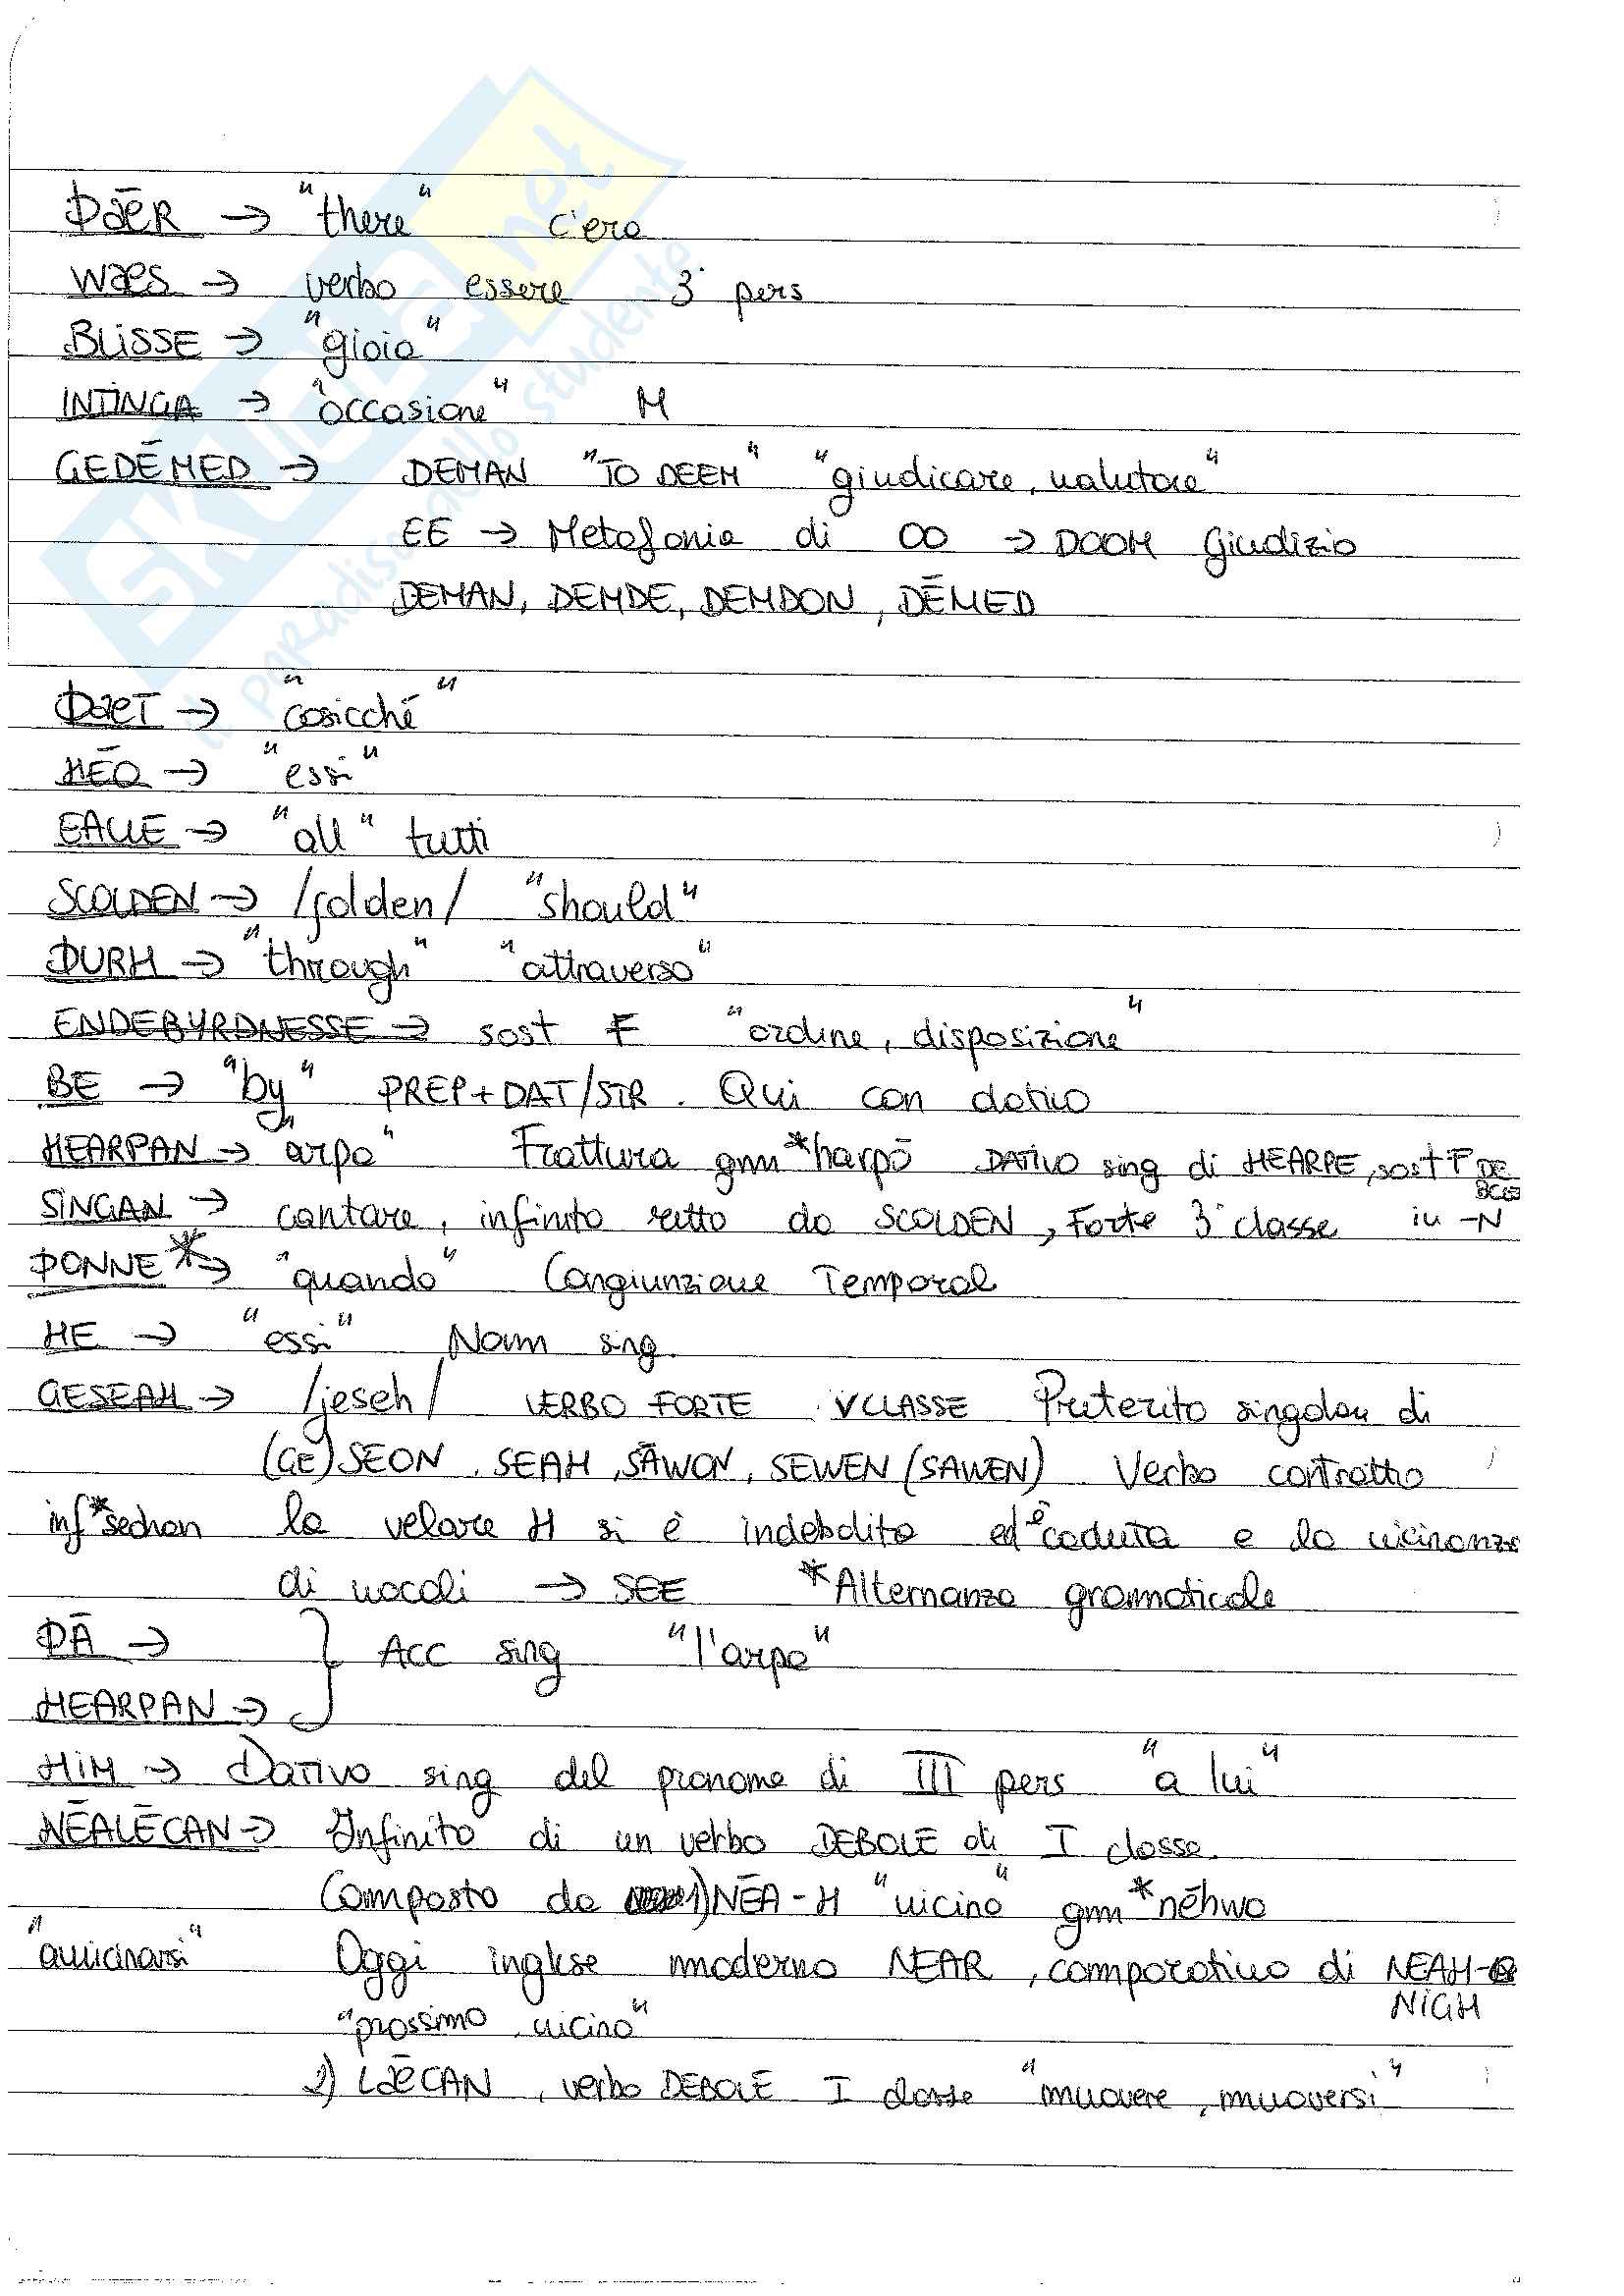 ÞǢR → "there" c'era
WæS → verbo essere 3ª pers
BLISSE → "gioia"
INTINGA → "occasione" M
GEDĒMED → DEMAN "TO DEEM" "giudicare, valutare"
EE → Metafonia di OO → DOOM Giudizio
DEMAN, DEMDE, DEMDON, DĒMED
ÞæT → "cosicché"
HĒO → "essi"
EALLE → "all" tutti
SCOLDEN → /ʃolden/ "should"
ÞURH → "through" "attraverso"
ENDEBYRDNESSE → sost F "ordine, disposizione"
BE → "by" PREP+DAT/STR. Qui con dativo
HEARPAN → "arpa" Frattura gmn *harpō DATIVO sing di HEARPE, sost F DE
SINGAN → cantare, infinito retto da SCOLDEN, Forte 3ª classe in -N
ÞONNE* → "quando" Congiunzione Temporal
HE → "essi" Nom sing.
GESEAH → /jeseh/ VERBO FORTE V CLASSE Preterito singolare di
(GE)SEON, SEAH, SĀWON, SEWEN (SAWEN) Verbo contratto
inf *sechan la velare H si è indebolita ed è caduta e la vicinanza
di vocali → SEE *Alternanza grammaticale
ÞĀ →
HEARPAN → } Acc sing "l'arpa"
HIM → Dativo sing del pronome di III pers "a lui"
NĒALĒCAN → Infinito di un verbo DEBOLE di I classe.
Composto da 1) NĒA-H "vicino" gmn *nēhwa
"avvicinarsi" Oggi inglese moderno NEAR, comparativo di NEAH-
NIGH
"prossimo, vicino"
2) LǢCAN, verbo DEBOLE I classe "muovere, muoversi"
skuola.net
il paradiso dello studente